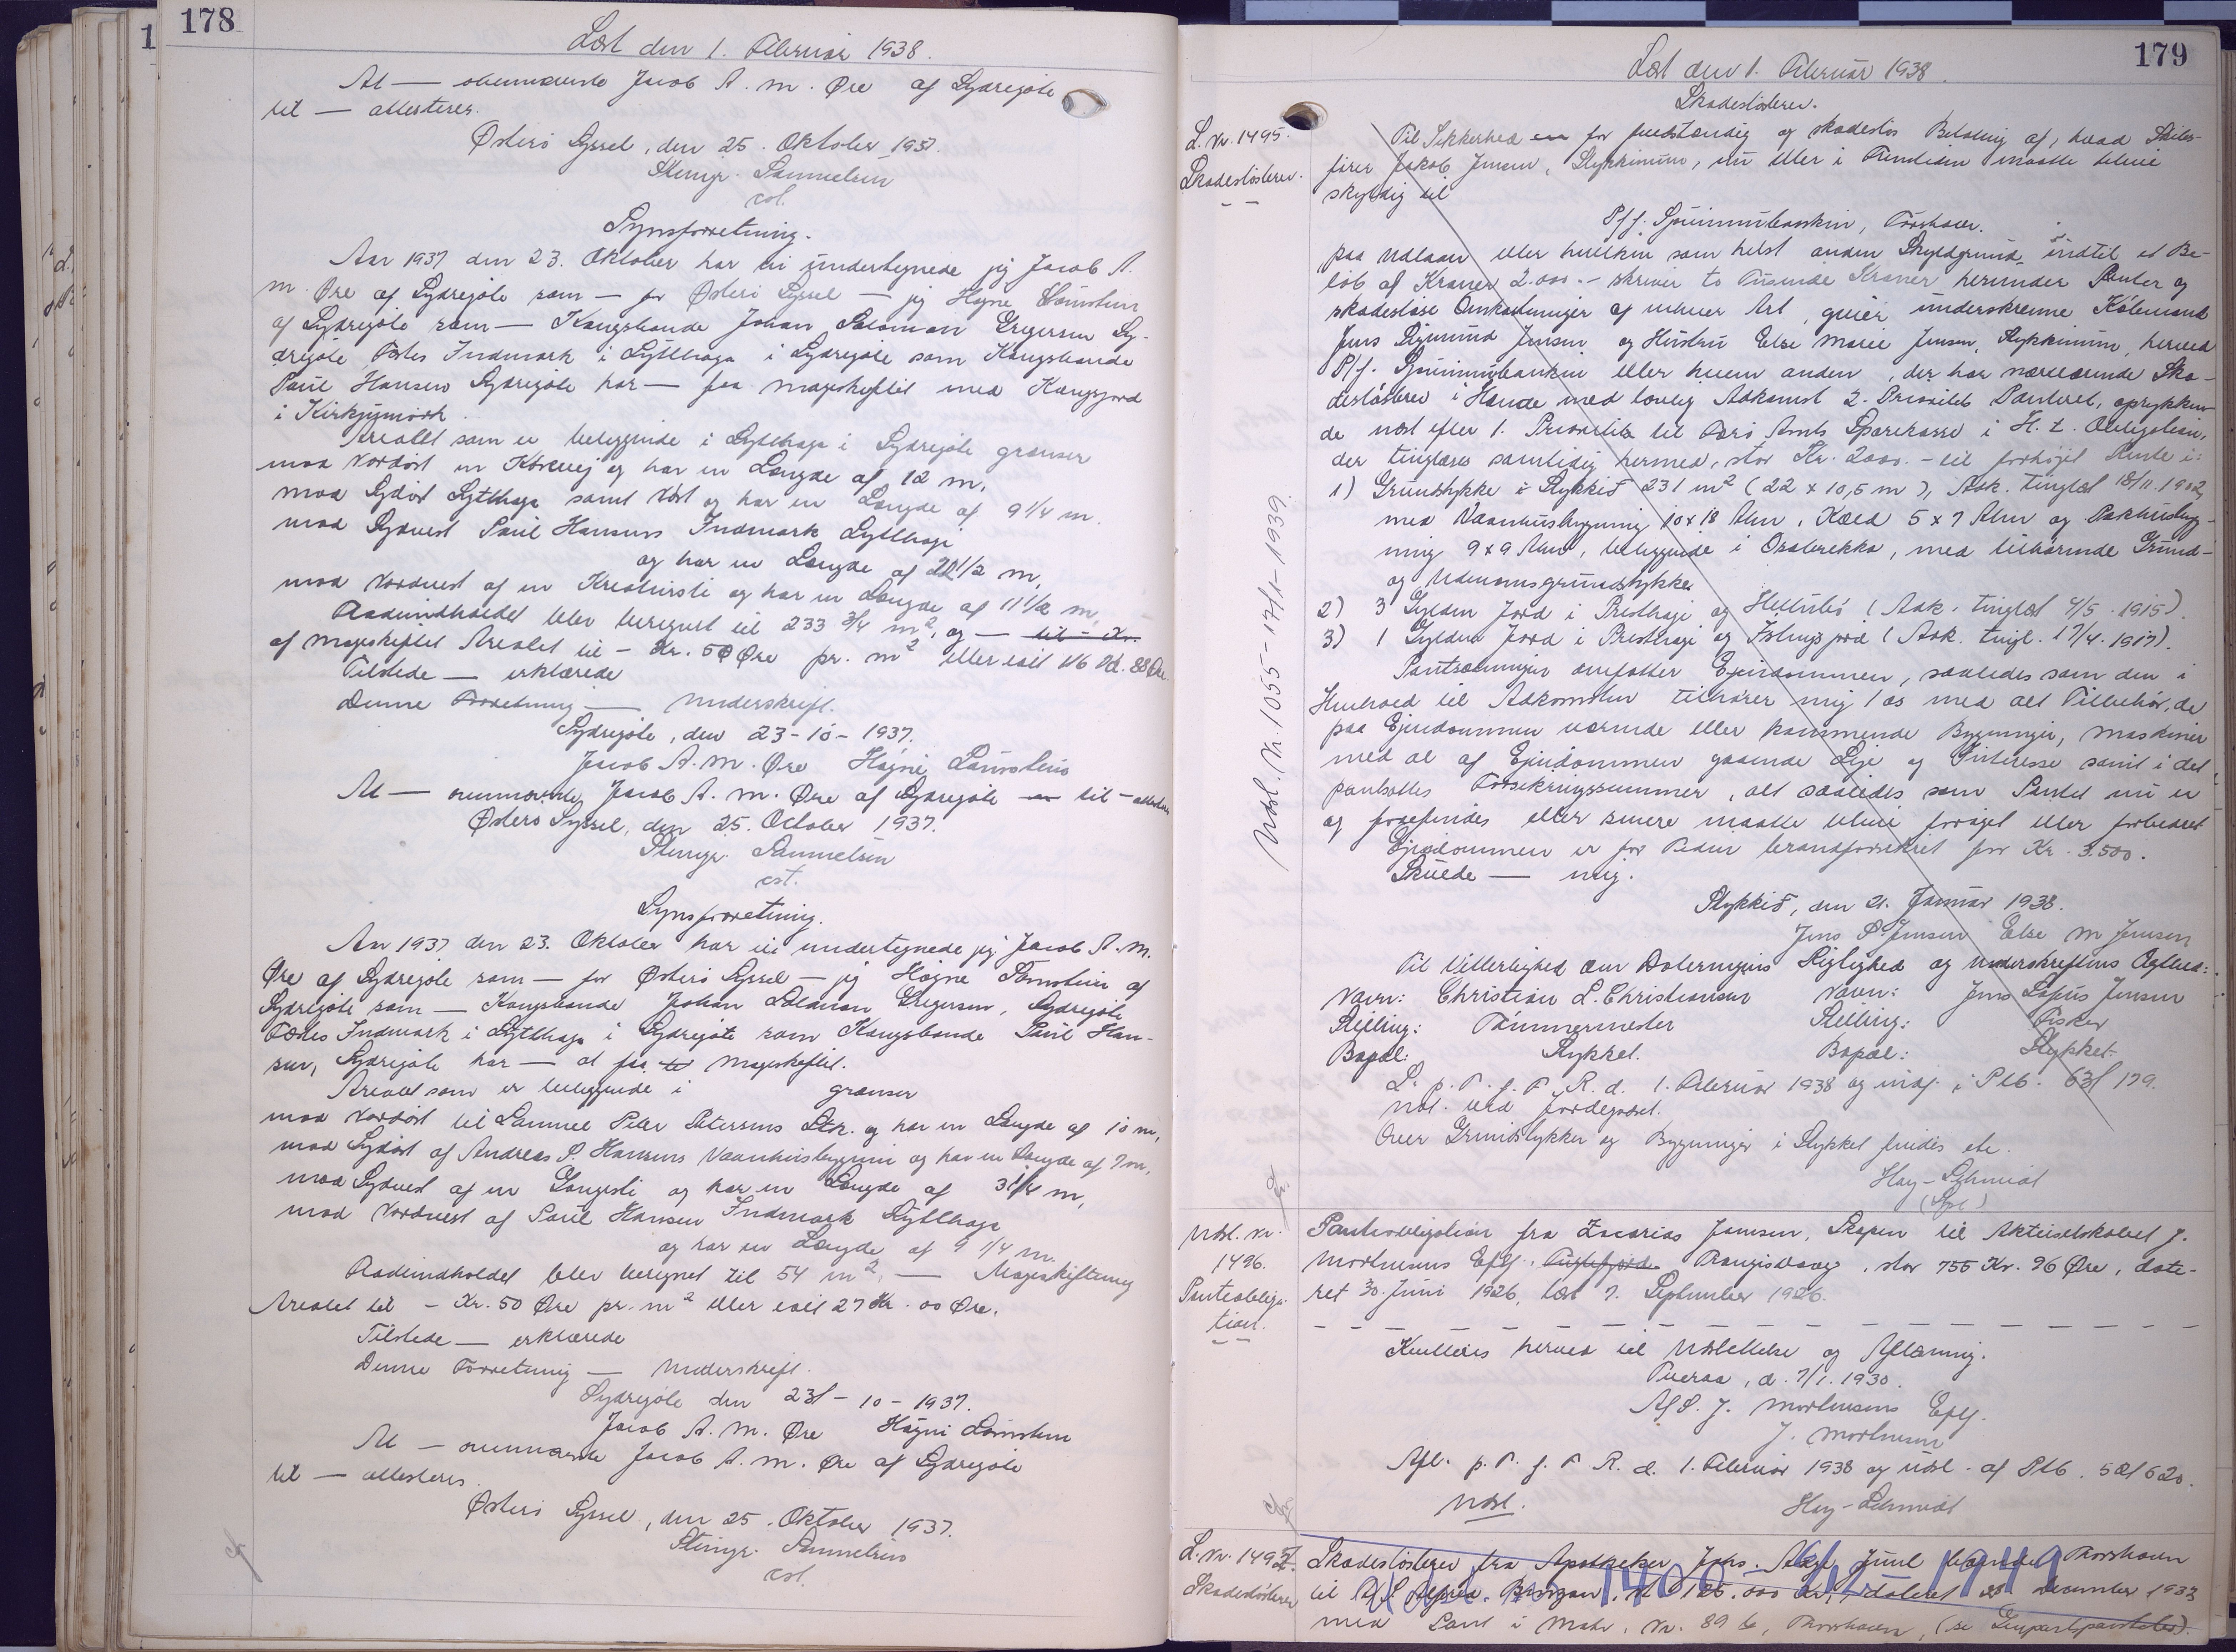 178
Læst den 1. Februar 1938.
At — ovennævnte Jacob A. M. Øre af Sydrejøte
til — attesteres.
Østerø Syssel, den 25. Oktober 1937.
Stengr. Samuelsen
cst.
Synsforretning.
Aar 1937 den 23. Oktober har vi undertegnede jeg Jacob A.
M. Øre af Sydrejøte som — for Østerø Syssel — jeg Høgne
af Sydrejøte som — Kongsbonde Johan Salomon Gregersen Sy-
drejøte Fæstes Indmark i Lytlhaga i Sydrejøte som Kongsbonde
Paul Hansen Sydrejøte har — faa mageskiftet med Kongsjord
i
Arealet som er beliggende i Lytlhaga i Sydrejøte grænser
mod Nordøst en Kørevej og har en Længde af 12 m,
mod Sydøst Lytlhaga samt Vest og har en Længde af 9 1/4 m.
mod Sydvest Paul Hansens Indmark Lytlhagi
og har en Længde af 20 1/2 m,
mod Nordvest af en Kreatursti og har en Længde af 11 1/2 m,
Fladeindholdet blev beregnet til 233 3/4 m², og — til - Kr.
af mageskiftet Arealet til - Kr. 50 Øre pr. m² eller ialt 116 Kr. 88 Øre.
Tilstede — erklærede
Denne Forretning — Underskrift.
Sydrejøte, den 23-10-1937.
Jacob A. M. Øre Høgni
At — ovennævnte Jacob A. M. Øre af Sydrejøte — til - attesteres
Østerø Syssel, den 25. October 1937.
Stengr. Samuelsen
cst.
Synsforretning.
Aar 1937 den 23. Oktober har vi undertegnede jeg Jacob A. M.
Øre af Sydrejøte som — for Østerø Syssel — jeg Høgne af
Sydrejøte som — Kongsbonde Johan Salomon Gregersen, Sydrejøte
Fæstes Indmark i Lytlhaga i Sydrejøte som Kongsbonde Paul Han-
sen, Sydrejøte har — at faa til mageskiftet.
Arealet som er beliggende i grænser
mod Nordøst til Samuel Peter Petersens Stk. og har en Længde af 10 m,
mod Sydøst af Andreas P. Hansens Vaanhusbygning og har en Længde af 7 m,
mod Sydvest af en Gangsti og har en Længde af 3 1/4 m,
mod Nordvest af Paul Hansen Indmark Lytlhaga
og har en Længde af 9 1/4 m.
Fladeindholdet blev beregnet til 54 m², — Mageskiftning
Arealet til - Kr. 50 Øre pr. m² eller ialt 27 Kr. 00 Øre.
Tilstede — erklærede
Denne Forretning — Underskrift.
Sydrejøte den 23 - 10 - 1937.
Jacob A. M. Øre Høgni
At — ovennævnte Jacob A. M. Øre af Sydrejøte
til — attesteres.
Østerø Syssel, den 25. Oktober 1937.
Stengr. Samuelsen
cst.
179
Læst den 1. Februar 1938.
Skadesløsbrev.
L. Nr. 1495.
Skadesløsbrev.
Til Sikkerhed en for fuldstændig og skadesløs Betaling af, hvad Skibs-
fører Jakob Jensen, Stykkinum, nu eller i Fremtiden maatte blive
skyldig til
P/f. Sjóvinnubankin, Tórshavn.
paa Udlaan eller hvilken som helst anden Skyldgrund indtil et Be-
løb af Kroner 2.000.- skriver to Tusinde Kroner herunder Renter og
skadesløse Omkostninger af enhver Art, giver underskrevne Købmand
Jens Sigmund Jensen og Hustru Else Marie Jensen, Stykkinum, herved
P/f. Sjóvinnubankin eller hvem anden, der har nærværende Ska-
desløsbrev i Hænde med lovlig Adkomst 2. Prioritets Panteret, oprykken-
de næst efter 1. Prioritet til Færø Amts Sparekasse i H. t. Obligation,
der tinglæses samtidig hermed, stor Kr. 2000.- til forhøjet Rente i:
1) Grundstykke i Stykkið 231 m² (22 x 10,5 m), Adk. tinglæst 18/11. 1902,
med Vaanhusbygning 10 x 18 Alen, Kæld 5 x 7 Alen og Pakhusbyg-
ning 9 x 9 Alen, beliggende i, med tilhørende Grund-
og Udenomsgrundstykke
2) 3 Gylden Jord i Presthagi og (Adk. tinglæst 4/5. 1915)
3) 1 Gylden Jord i Presthagi og (Adk. tingl. 17/4. 1917).
Pantsætningen omfatter Ejendommen, saaledes som den i
Henhold til Adkomsten tilhører mig/os med alt Tilbehør, de
paa Ejendommen værende eller kommende Bygninger, Maskiner
med al af Ejendommen gaaende Leje og Interesse samt i det
pantsattes Forsikringssummer, alt saaledes som Pantet nu er
og forefindes eller senere maatte blive forøget eller forbedret
Ejendommen er for Tiden brandforsikret for Kr. 3.500.
Skulde — mig.
Stykkið, den 21. Januar 1938.
Jens S. Jensen Else M Jensen
Til Vitterlighed om Dateringens Rigtighed og Underskriftens Ægthed:
Navn: Christian L. Christiansen Navn: Jens Jensen
Stilling: Tømmermester Stilling: Fisker
Bopæl: Stykket. Bopæl: Stykket.
L. p. T. f. F. R. d. 1. Februar 1938 og indf. i Ptb. 63/179.
Not. ved Jordegodset.
Over Grundstykker og Bygninger i Stykket findes ete.
Hay-Schmidt
(Spl.)
Udsl. Nr. 1055 - 17/1 - 1939.
Udsl. Nr.
1496.
Panteobliga-
tion.
Panteobligation fra Zacarias Jensen, Skopun til Aktieselskabet J.
Mortensens Eftf. Trangisvaag, stor 755 Kr. 96 Øre, date-
ret 30. Juni 1926, læst 7. September 1926.
Kvitteres herved til Udslettelse og Aflæsning.
Tveraa, d. 7/1. 1930.
A/S. J. Mortensens Eftf.
J. Mortensen
Afl. p. T. f. F R. d. 1. Februar 1938 og udsl. af Ptb. 52/620.
Udsl. Hay-Schmidt
L. Nr. 1497.
Skadesløsbrev
Skadesløsbrev fra Apotheker Johs. Juul Thorshavn
til A/S Alfred Benzon, 125.000 Kr., dateret December 1937
med Pant i Matr. Nr. 89 b, Thorshavn, (se Genpartpanteb.).
1949